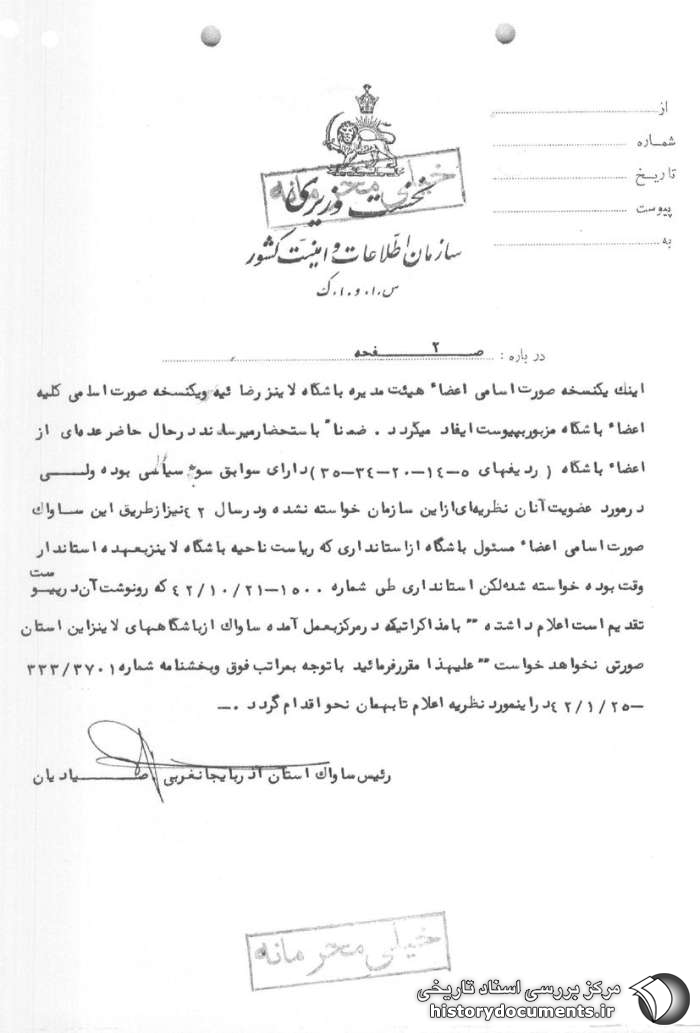 از
شماره
تاریخ
پیوست
به
خیلی محرمانه
نخست وزیری
سازمان اطلاعات و امنیت کشور
س.ا.و.ا.ک
درباره : صـــفحه ۲
اینك یكنسخه صورت اسامی اعضاء هیئت مدیره باشگاه لاینز رضائیه ویكنسخه صورت اسامی كلیه
اعضاء باشگاه مزبور بپیوست ایفاد میگردد . ضمناً باستحضار میرساند درحال حاضر عده‌ای از
اعضاء باشگاه ( ردیفهای ۵-۱۴-۲۰-۳۴-۳۵) دارای سوابق سوء سیاسی بوده ولـــی
درمورد عضویت آنان نظریه‌ای ازاین سازمان خواسته نشده ودرسال ۴۲ نیز ازطریق این ســاواك
صورت اسامی اعضاء مسئول باشگاه ازاستانداری كه ریاست ناحیه باشگاه لاینز بعهده استاندار
وقت بوده خواسته شده لكن استانداری طی شماره ۱۵۰۰-۴۲/۱۰/۲۱ كه رونوشت آن درپیوست
تقدیم است اعلام داشته " بامذاكراتیكه درمركز بعمل آمده ساواك ازباشگاههای لاینز این استان
صورتی نخواهد خواست " علیهذا مقرر فرمائید باتوجه بمراتب فوق وبخشنامه شماره ۳۳۳/۳۷۰۱
-۴۲/۱/۲۵ دراینمورد نظریه اعلام تابهمان نحو اقدام گردد .-
رئیس ساواك استان آذربایجانغربی . صـــیادیان
خیلی محرمانه
مرکز بررسی اسناد تاریخی
historydocuments.ir